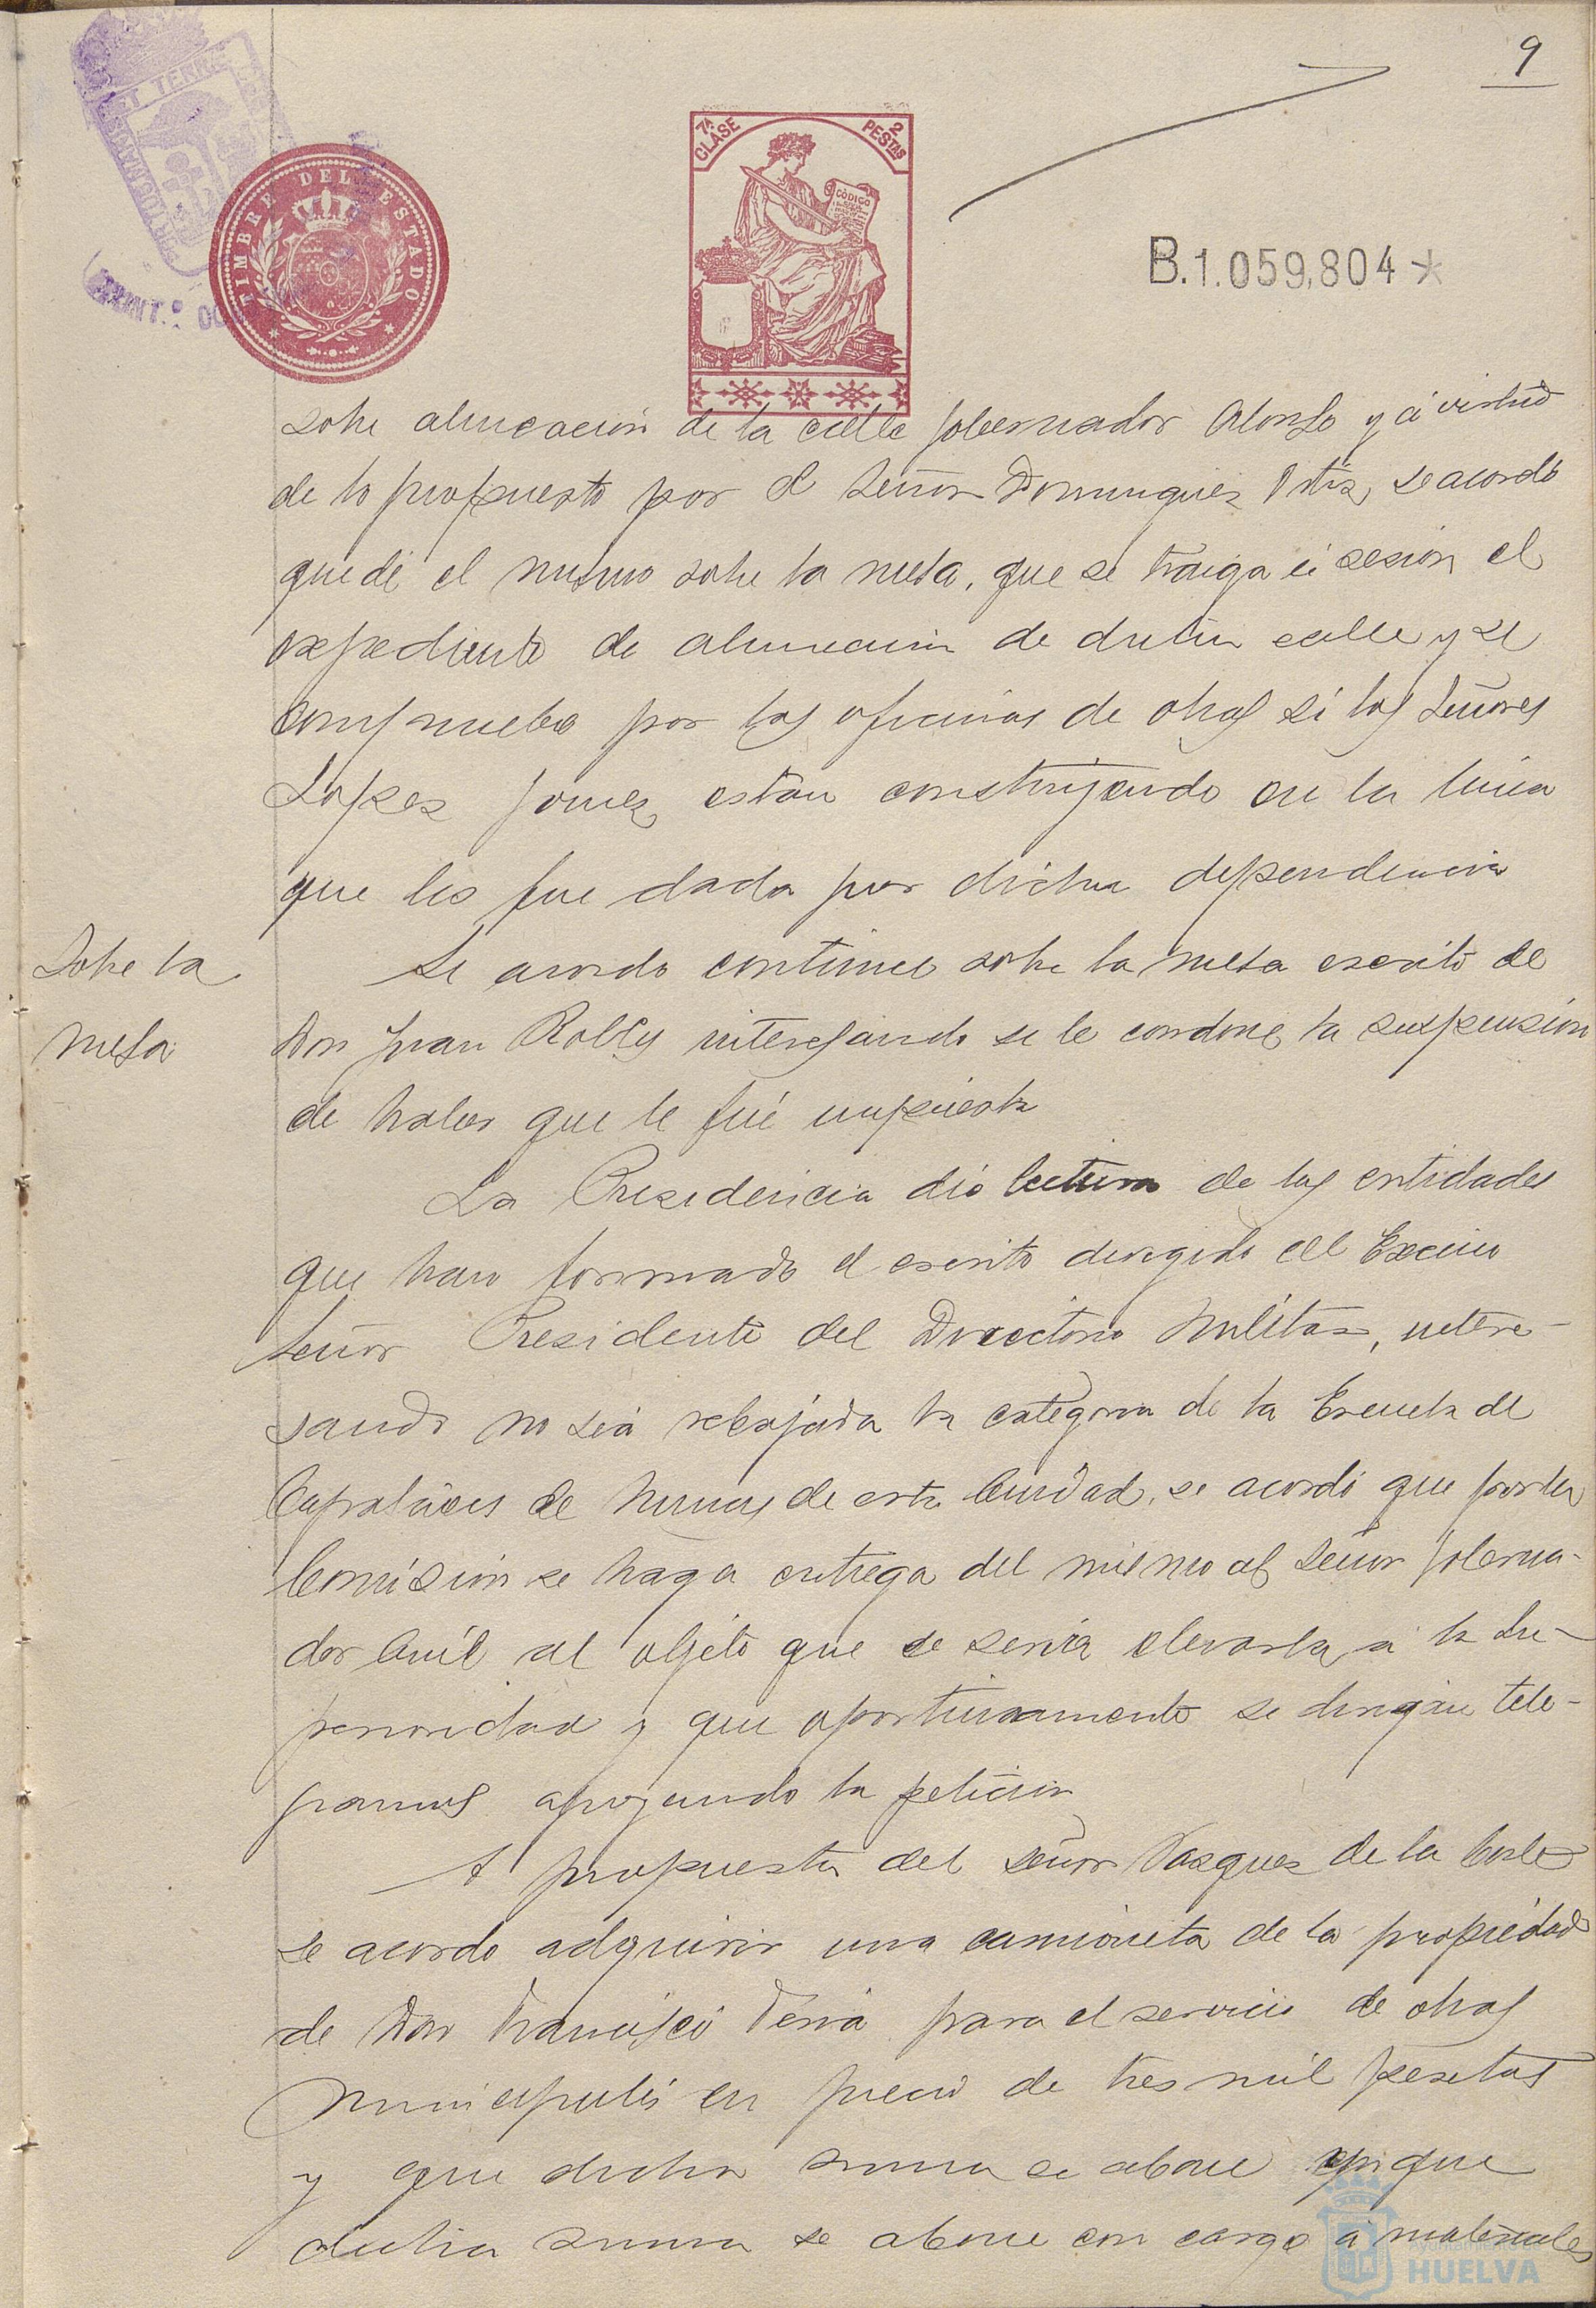 9
PORTUS MARIS ET TERRÆ
TIMBRE DEL ESTADO
7ª CLASE
2 PESTAS
CÓDIGO
B.1.059,804*
sobre alineación de la calle Gobernador Alonso y á virtud
de lo propuesto por el Señor Dominguez Ortiz, se acordó
quede el mismo sobre la mesa, que se traiga á sesion el
expediente de alineacion de dicha calle y se
compruebe por las oficinas de obras si los Señores
Lopez Gomez, estan construyendo en la linea
que les fue dada por dicha dependencia
Sobre la
mesa
Se acordo continue sobre la mesa escrito de
Don Juan Robles interesando se le condone la suspension
de haber que le fué impuesta
La Presidencia dió lectura de las entidades
que han formado el escrito dirigido al Excmo
Señor Presidente del Directorio Militar, intere-
sando no sea rebajada la categoria de la Escuela de
Capataces de Minas de esta Ciudad, se acordó que por la
Comisión se haga entrega del mismo al Señor Goberna-
dor Civil al objeto que se sirva elevarla á la Su-
perioridad y que oportunamente se dirijan tele-
gramas apoyando la peticion
A propuesta del señor Vazquez de la Corte
se acordo adquirir una camioneta de la propiedad
de Don Francisco para el servicio de obras
Municipales en precio de tres mil pesetas
y que dicha suma se abone que
dicha suma se abone con cargo á materiales
HUELVA